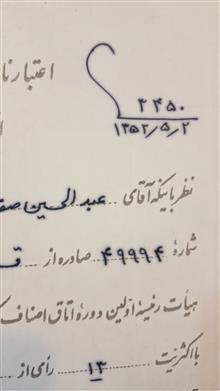 اعتبارنا
۲۴۵۰
۱۳۵۲/۵/۲
نظر باینکه آقای عبدالحسین صف
شمارهٔ ۴۹۹۹۴ صادره از
هیأت رئیسهٔ اولین دورهٔ اتاق اصناف
با اکثریت ۱۳ رأی از